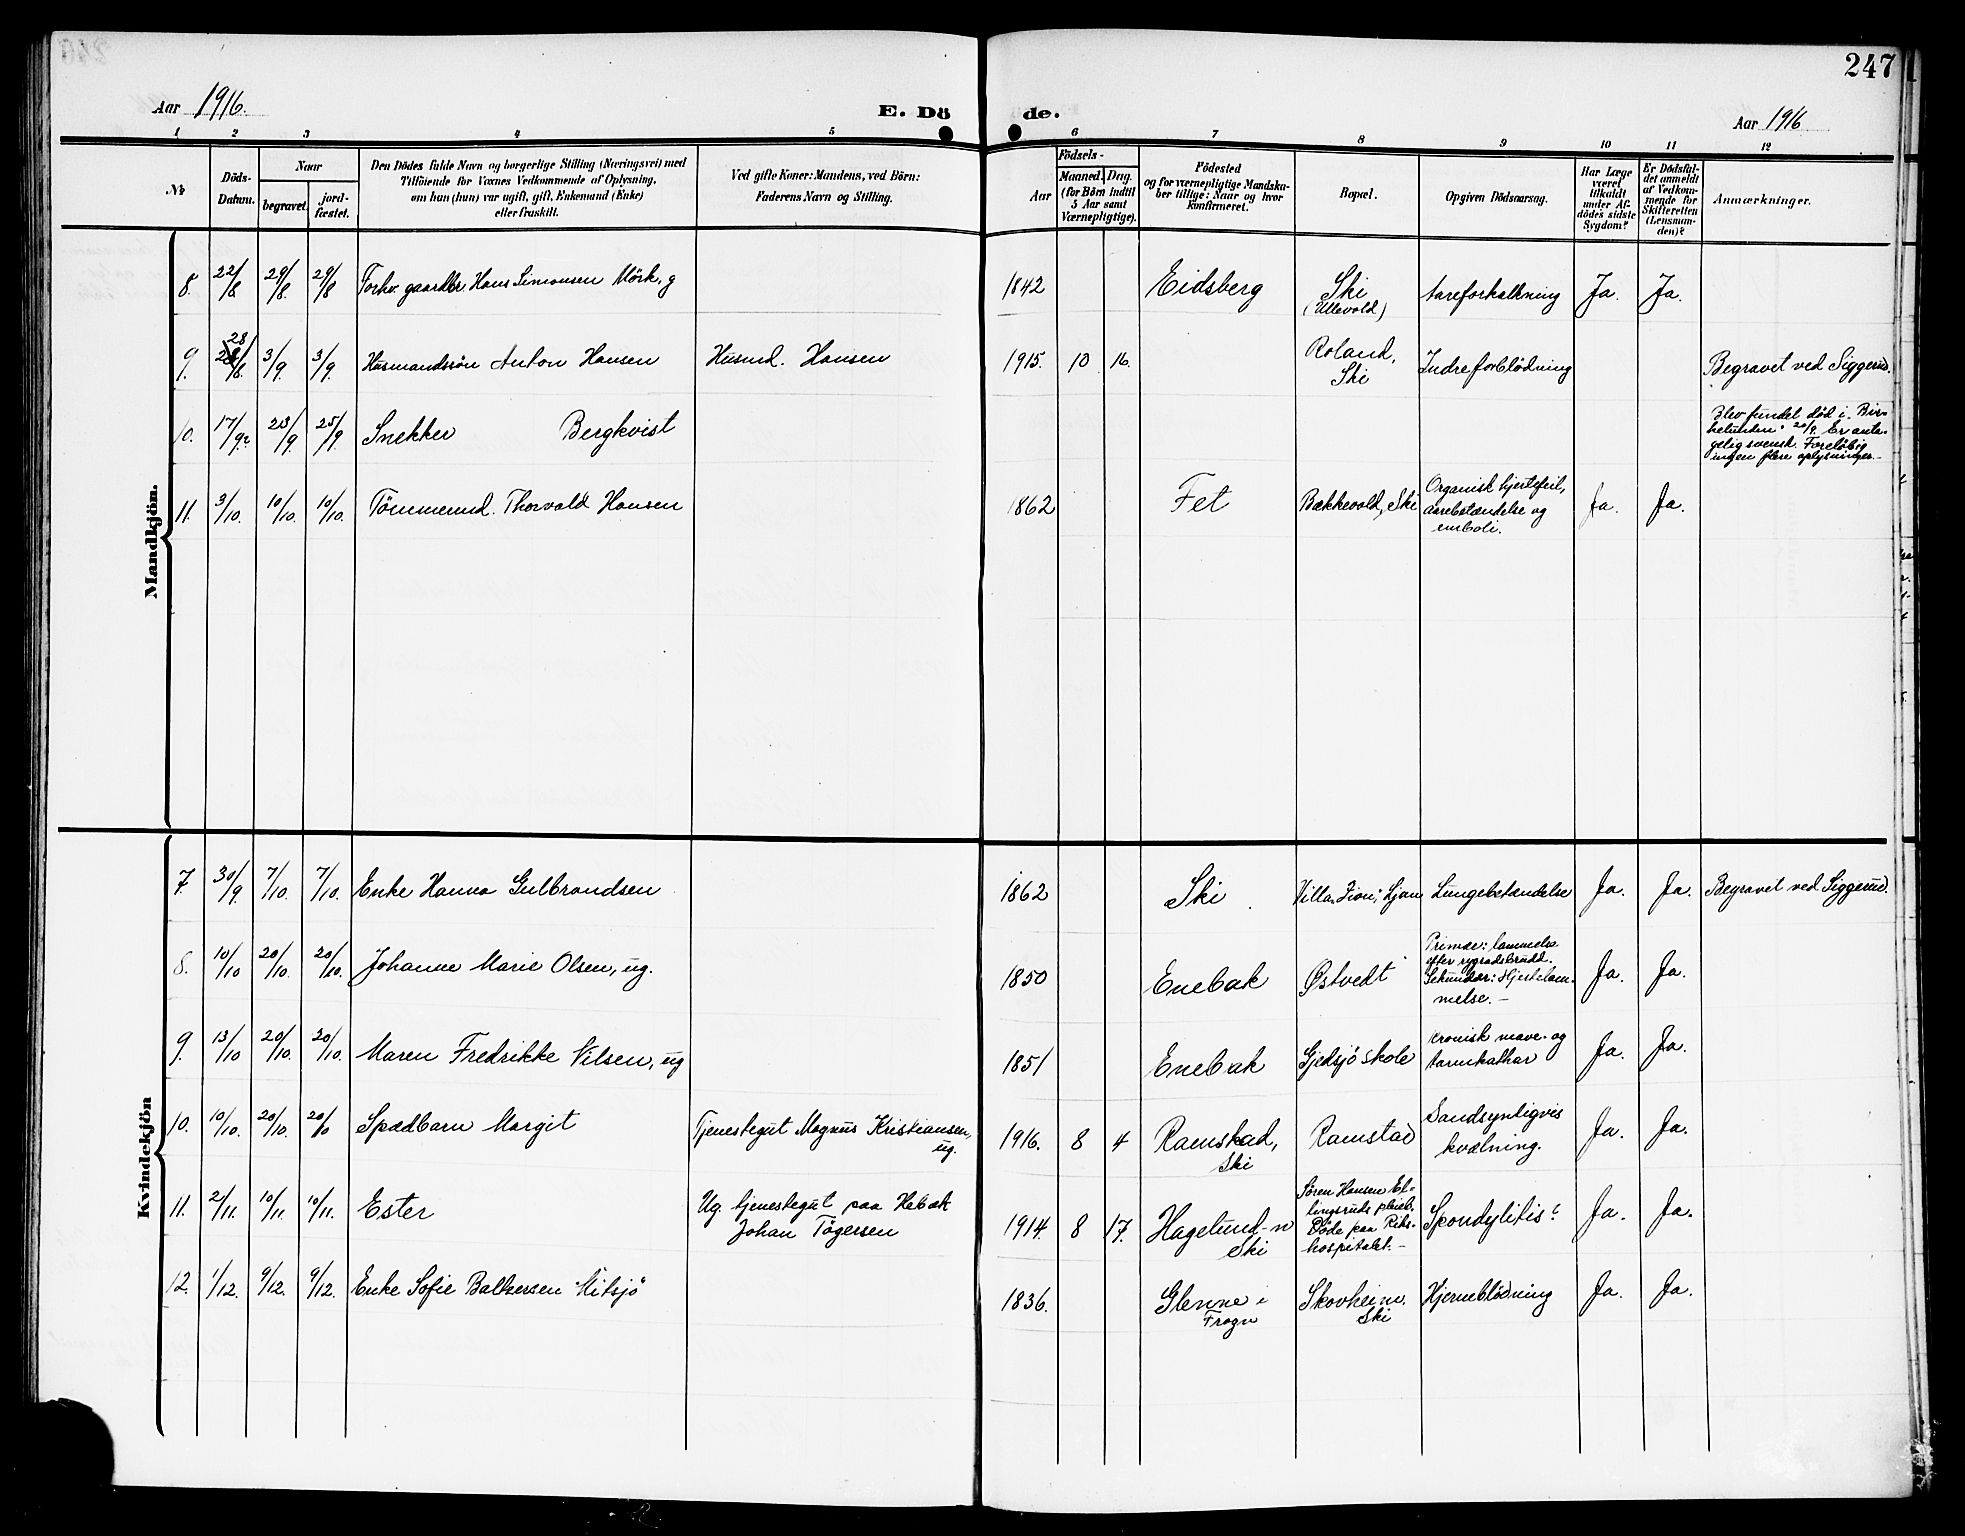 247
Aar 1916.
E. Dö
de.
Aar 1916
1 2 3 4 5 6 7 8 9 10 11 12
No
Döds-
Datum.
Naar
begravet.
jord-
fæstet.
Den Dödes fulde Navn og borgerlige Stilling (Næringsvei) med
Tilföiende for Voxnes Vedkommende af Oplysning,
om han (hun) var ugift, gift, Enkemand (Enke)
eller fraskilt.
Ved gifte Koner: Mandens, ved Börn:
Faderens Navn og Stilling.
Födsels-
Aar
Maaned.
Dag.
(for Börn indtil
5 Aar samt
Værnepligtige).
Födested
og for værnepligtige Mandska-
ber tillige: Naar og hvor
konfirmeret.
Bopæl.
Opgiven Dödsaarsag.
Har Læge
været
tilkaldt
under Af-
dödes sidste
Sygdom?
Er Dödsfal-
det anmeldt
af Vedkom-
mende for
Skifteretten
(Lensman-
den)?
Anmærkninger.
Mandkjön.
8. 22/8 29/8. 29/8 Forhv. gaardbr. Hans Simonsen Mörk, g 1842 Eidsberg Ski
(Ullevold)
Aareforkalkning Ja. Ja.
9. 28/8. 3/9. 3/9. Husmandssön Anton Hansen Husmd. Hansen 1915. 10 16. Roland,
Ski
Indre forblödning Begravet ved Siggerud.
10. 17/9? 23/9 25/9 Snekker Bergkvist
Blev fundet død i "Bir-
kelunden" 20/9. Er anta-
gelig svensk. Foreløbig
ingen flere oplysninger.-
11. 3/10. 10/10. 10/10. Tömmermd. Thorvald Hansen 1862 Fet Bækkevold, Ski
Organisk hjertefeil,
aarebetændelse og
emboli.
Ja. Ja.
Kvindekjön
7. 30/9 7/10. 7/10. Enke Hanna Gulbrandsen 1862 Ski Villa "Zion", Ljan Lungebetændelse Ja. Ja. Begravet ved Siggerud.
8. 10/10 20/10. 20/10. Johanne Marie Olsen, ug. 1850 Enebak Østvedt
Primær: lammelse
efter rygradsbrudd.
Sekundær: Hjertelam-
melse.-
Ja. Ja.
9. 13/10 20/10. 20/10. Maren Fredrikke Nilsen, ug 1851 Enebak Gjedsjö skole
Kronisk mave- og
tarmkathar
Ja. Ja.
10. 10/10. 20/10. 20/10 Spædbarn Margit Tjenestegut Magnus Kristiansen,
ug.
1916. 8 4 Ramstad,
Ski
Ramstad
Sandsynligvis
kvælning.
Ja. Ja.
11. 2/11. 10/11. 10/11. Ester Ug. tjenestegut paa Hebæk
Johan Tögersen
1914. 8 17. Hagelund-n
Ski
Søren Hansen Et-
lingsruds pleieb.
Døde paa Riks-
hospitalet.-
Spondylitis? Ja. Ja.
12. 1/12. 9/12. 9/12. Enke Sofie Baltsersen "Mitsjö" 1836. Glenne i
Frogn
Skovheim.
Ski
Hjerneblödning Ja. Ja.